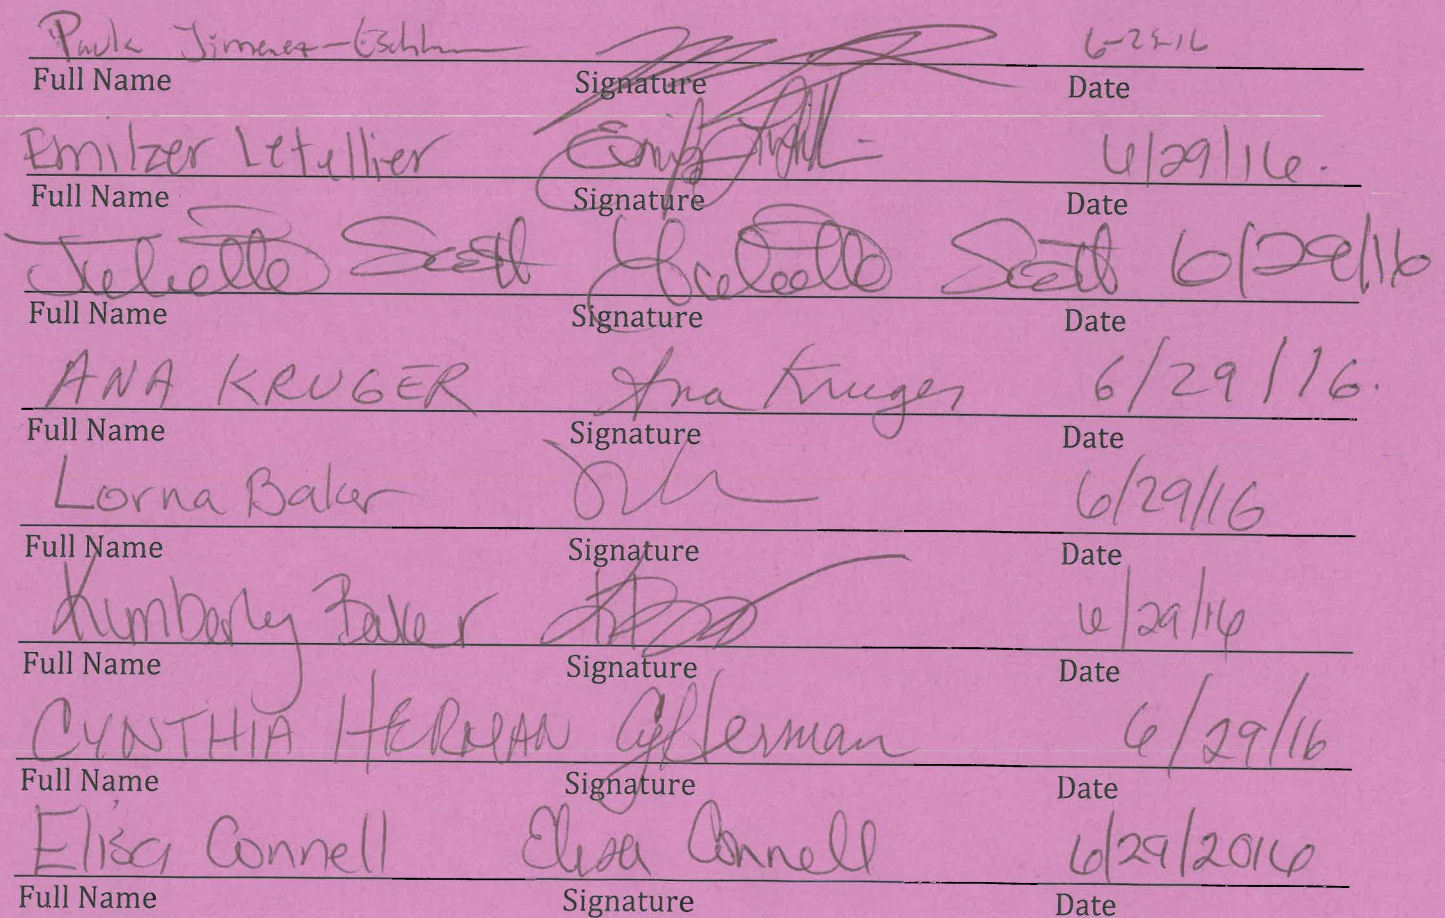 Paula Jimenez-
Full Name Signature Date
Emilzer Letellier 6/29/16.
Full Name Signature Date
Juliette Scott Juliette Scott 6/29/16
Full Name Signature Date
ANA KRUGER Ana Kruger 6/29/16.
Full Name Signature Date
Lorna Baker 6/29/16
Full Name Signature Date
Kimberly Baker 6/29/16
Full Name Signature Date
CYNTHIA HERMAN CyHerman 6/29/16
Full Name Signature Date
Elisa Connell Elisa Connell 6/29/2016
Full Name Signature Date